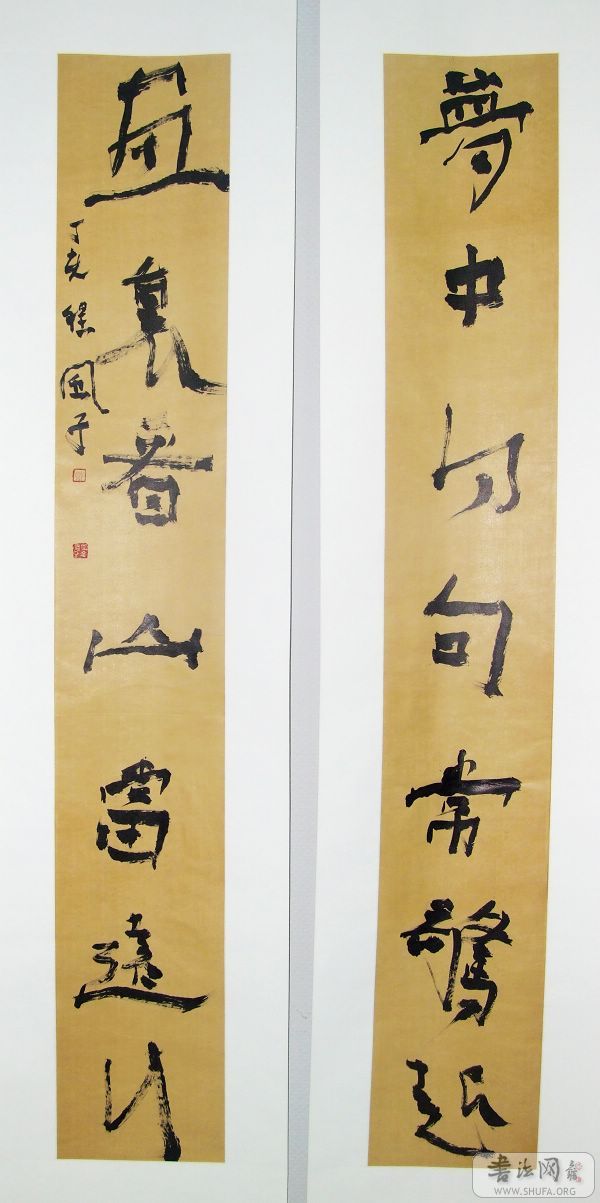 夢中得句常驚起
畫裏看山當遠行
丁亥
書法网
WWW.SHUFA.ORG